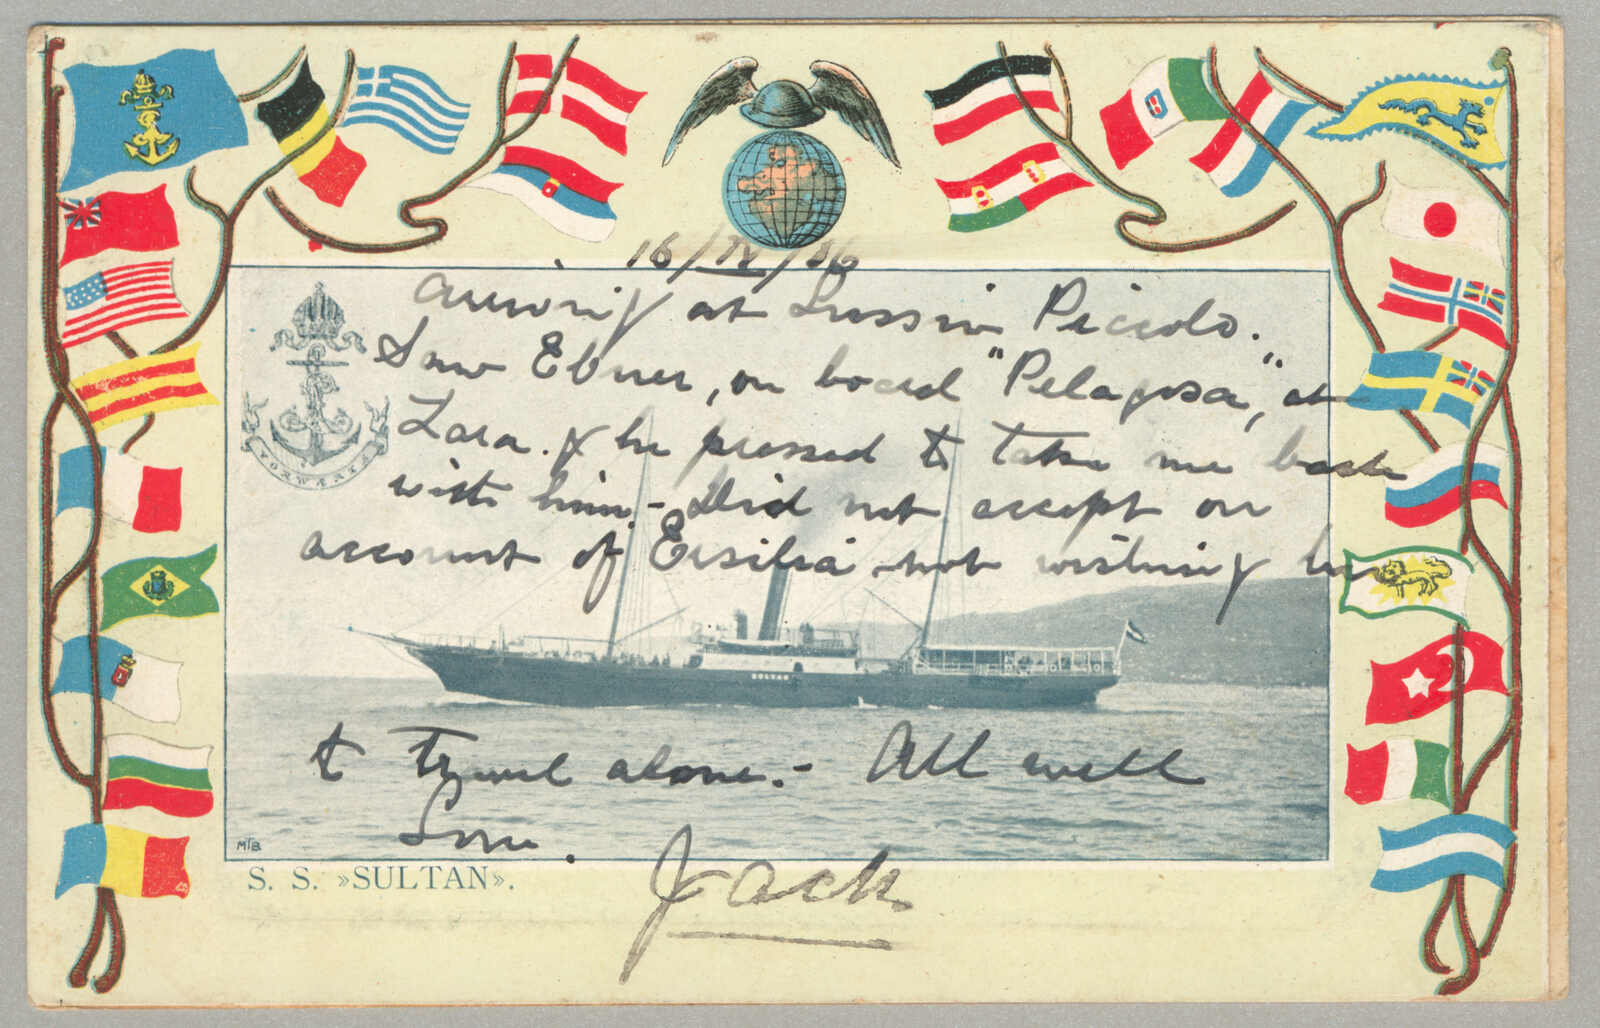 16/IV/06
Arriving at Lussin Piccolo.
Saw Ebner, on board "Pelagosa", at
Zara. & he pressed to take me back
with him. - Did not accept on
account of Ersilia not wishing her
to travel alone. - All well
Love.
Jack
VORWÄRTS
SULTAN
MTB
S. S. »SULTAN».